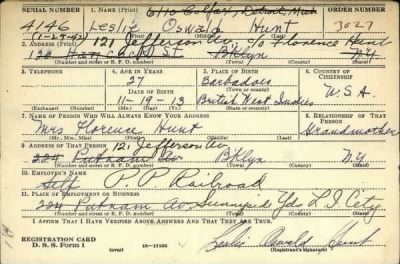 SERIAL NUMBER 1. NAME (Print) 6110 Colfax, Detroit, Mich ORDER NUMBER
4146 Leslie Oswald Hunt 3027
(First) (Middle) (Last)
(1-29-42) 121 Jefferson Av. c/o Florence Hunt
2. ADDRESS (Print)
130 St. Bklyn NY
(Number and street or R. F. D. number) (Town) (County) (State)
3. TELEPHONE 4. AGE IN YEARS 5. PLACE OF BIRTH 6. COUNTRY OF CITIZENSHIP
27 Barbados
DATE OF BIRTH (Town or county)
11-19-13 British West Indies U.S.A.
(Exchange) (Number) (Mo.) (Day) (Yr.) (State or country)
7. NAME OF PERSON WHO WILL ALWAYS KNOW YOUR ADDRESS 8. RELATIONSHIP OF THAT PERSON
Mrs Florence Hunt Grandmother
(Mr., Mrs., Miss) (First) (Middle) (Last)
9. ADDRESS OF THAT PERSON 121 Jefferson Av
224 Putnam Av Bklyn N.Y.
(Number and street or R. F. D. number) (Town) (County) (State)
10. EMPLOYER'S NAME
Self P.P. Railroad
11. PLACE OF EMPLOYMENT OR BUSINESS
224 Putnam Av Sunnyside Yds L.I. City
(Number and street or R. F. D. number) (Town) (County) (State)
I AFFIRM THAT I HAVE VERIFIED ABOVE ANSWERS AND THAT THEY ARE TRUE.
REGISTRATION CARD
D. S. S. Form 1 (over) Leslie Oswald Hunt
(Registrant's signature)